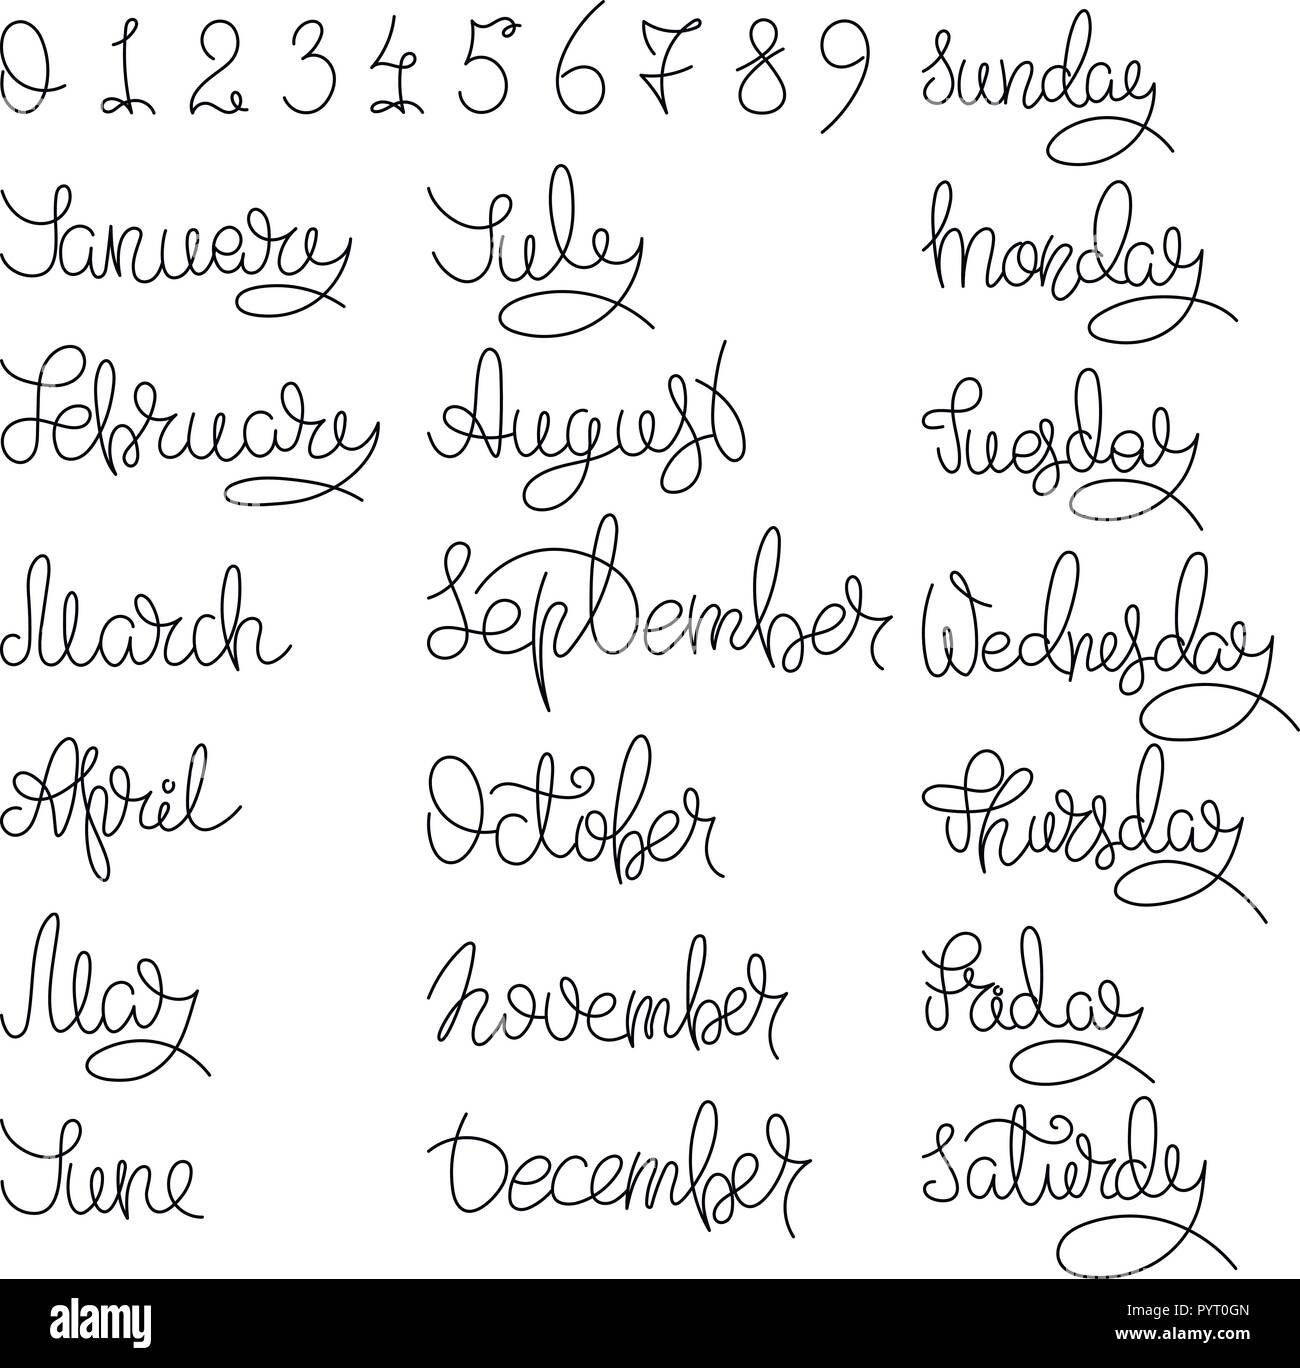 0 1 2 3 4 5 6 7 8 9
January
February
March
April
May
June
July
August
September
October
November
December
Sunday
Monday
Tuesday
Wednesday
Thursday
Friday
Saturdy
alamy
Image ID: PYT0GN
www.alamy.com